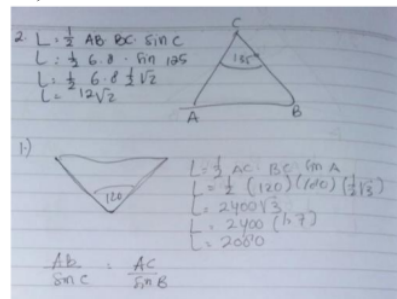 2. L = 1/2 AB BC. Sin C
L = 1/2 6.8 . Sin 135
L = 1/2 6.8 1/2 √2
L = 12√2
C
135°
A B
1.)
120
L = 1/2 AC . BC Sin A
L = 1/2 (120) (100) (1/2 √3)
L = 2400√3
L = 2400 (1.7)
L = 20010
Ab / Sin C = AC / Sin B